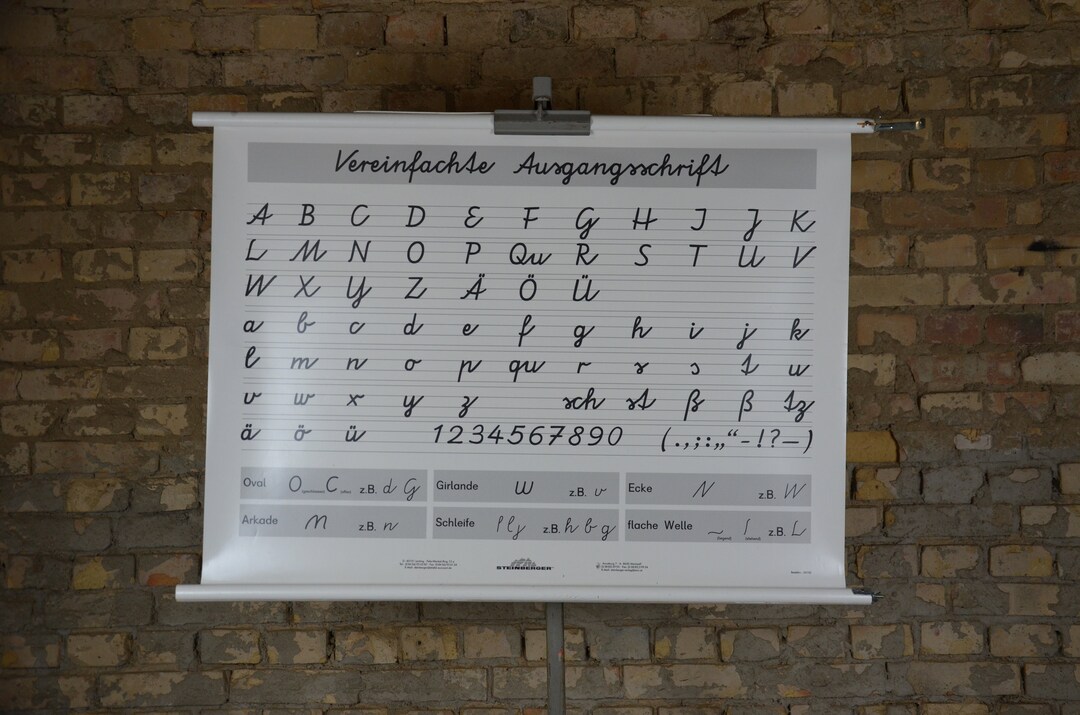 Vereinfachte Ausgangsschrift
A B C D E F G H I J K
L M N O P Qu R S T U V
W X Y Z Ä Ö Ü
a b c d e f g h i j k
l m n o p qu r s s t u
v w x y z sch st ß ß tz
ä ö ü 1234567890 (.,;:„“-!?–)
Oval O C z.B. d G Girlande w z.B. v Ecke N z.B. W
Arkade m z.B. n Schleife l l y z.B. h b g flache Welle ~ l z.B. L
STEINBERGER